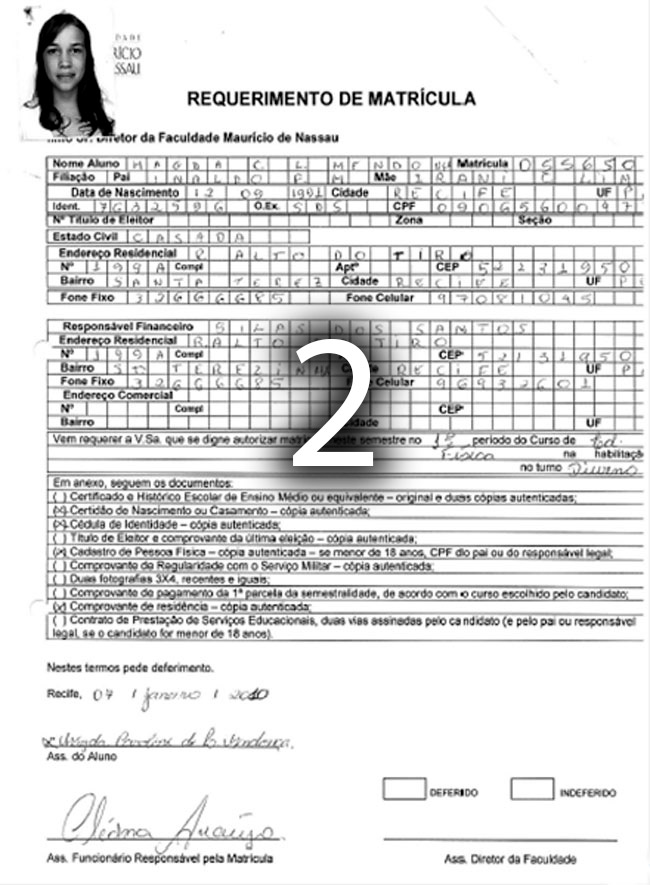 DADE
RÍCIO
SSAU
REQUERIMENTO DE MATRÍCULA
Diretor da Faculdade Maurício de Nassau
Nome Aluno MAGDA C. L. MENDO Matrícula 055650
Filiação Pai INALDO F. M Mãe IRANI F LIM
Data de Nascimento 12 09 1991 Cidade RECIFE UF P
Ident. 7632596 O.Ex. SDS CPF 0906560097
Nº Título de Eleitor Zona Seção
Estado Civil CASADA
Endereço Residencial R ALTO DO TIRO
Nº 199A Compl Aptº CEP 52231950
Bairro SANTA TEREZ Cidade RECIFE UF P
Fone Fixo 32666685 Fone Celular 97081045
Responsável Financeiro SILAS DOS SANTOS
Endereço Residencial R ALTO TIRO
Nº 199A Compl CEP 52131950
Bairro ST TEREZINHA RECIFE UF P
Fone Fixo 32666685 Fone Celular 96932601
Endereço Comercial
Nº Compl CEP
Bairro Cidade UF
2
Vem requerer a V.Sa. que se digne autorizar neste semestre no 1º período do Curso de Ed.
Física na habilitaçã
no turno Diurno
Em anexo, seguem os documentos:
( ) Certificado e Histórico Escolar de Ensino Médio ou equivalente – original e duas cópias autenticadas;
(x) Certidão de Nascimento ou Casamento – cópia autenticada;
(x) Cédula de Identidade – cópia autenticada;
( ) Título de Eleitor e comprovante da última eleição – cópia autenticada;
(x) Cadastro de Pessoa Física – cópia autenticada – se menor de 18 anos, CPF do pai ou do responsável legal;
( ) Comprovante de Regularidade com o Serviço Militar – cópia autenticada;
( ) Duas fotografias 3X4, recentes e iguais;
( ) Comprovante de pagamento da 1ª parcela da semestralidade, de acordo com o curso escolhido pelo candidato;
(x) Comprovante de residência – cópia autenticada;
( ) Contrato de Prestação de Serviços Educacionais, duas vias assinadas pelo candidato (e pelo pai ou responsável
legal, se o candidato for menor de 18 anos).
Nestes termos pede deferimento.
Recife, 07 / janeiro / 2010
x Magda Caroline de L. Mendonça
Ass. do Aluno
DEFERIDO INDEFERIDO
Cleoma Araújo
Ass. Funcionário Responsável pela Matrícula Ass. Diretor da Faculdade